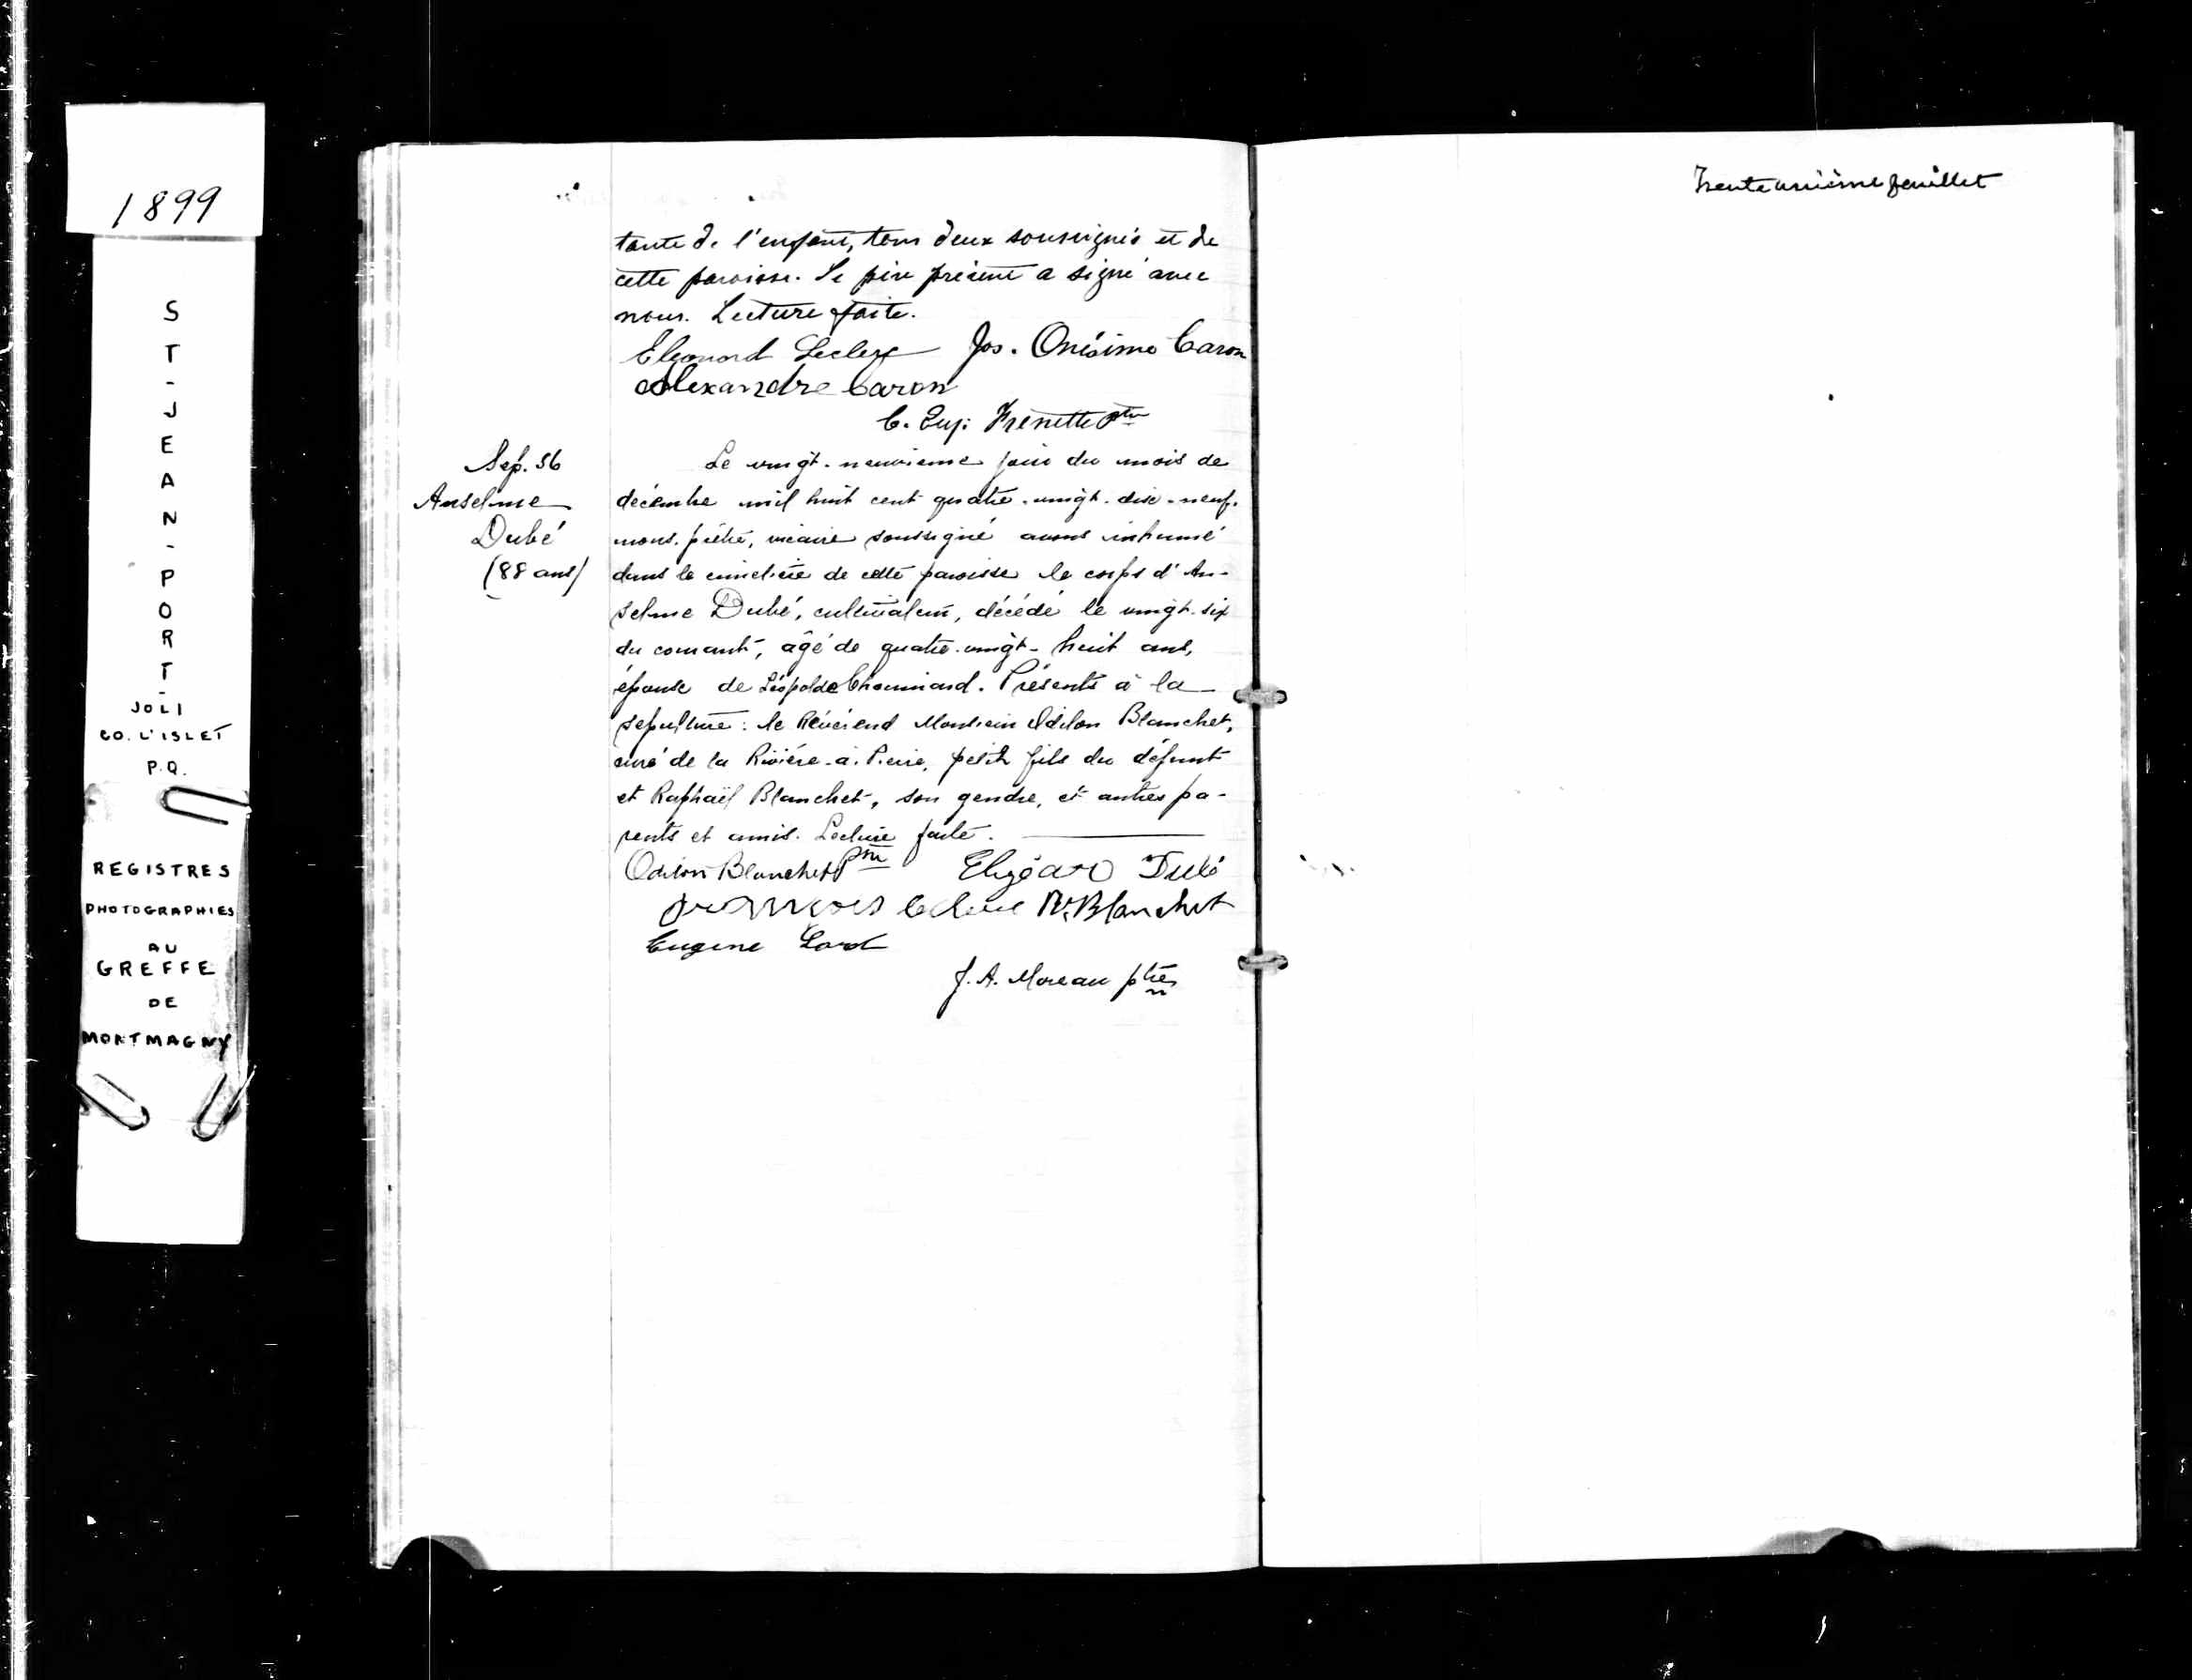 1899
ST-JEAN-PORT-
JOLI
CO. L'ISLET
P.Q.
REGISTRES
PHOTOGRAPHIES
AU
GREFFE
DE
MONTMAGNY
Trente unième feuillet
tante de l'enfant, tous deux soussignés et de
cette paroisse. Le père présent a signé avec
nous. Lecture faite.
Eléonord Leclerc Jos. Onésime Caron
Alexandre Caron
C. Eug. Frenette Ptre
Sep. 56
Anselme
Dubé
(88 ans)
Le vingt-neuvième jour du mois de
décembre mil huit cent quatre-vingt-dix-neuf,
nous, prêtre, vicaire soussigné avons inhumé
dans le cimetière de cette paroisse le corps d'An-
selme Dubé, cultivateur, décédé le vingt-six
du courant, âgé de quatre-vingt-huit ans,
épouse de Léopolde Chouinard. Présents à la
sépulture: le Révérend Monsieur Odilon Blanchet,
curé de la Rivière-à-Pierre, petit fils du défunt
et Raphaël Blanchet, son gendre, et autres pa-
rents et amis. Lecture faite.
Odilon Blanchet Ptre Elzéar Dubé
François Leclerc R. Blanchet
Eugène Lord
J. A. Moreau ptre